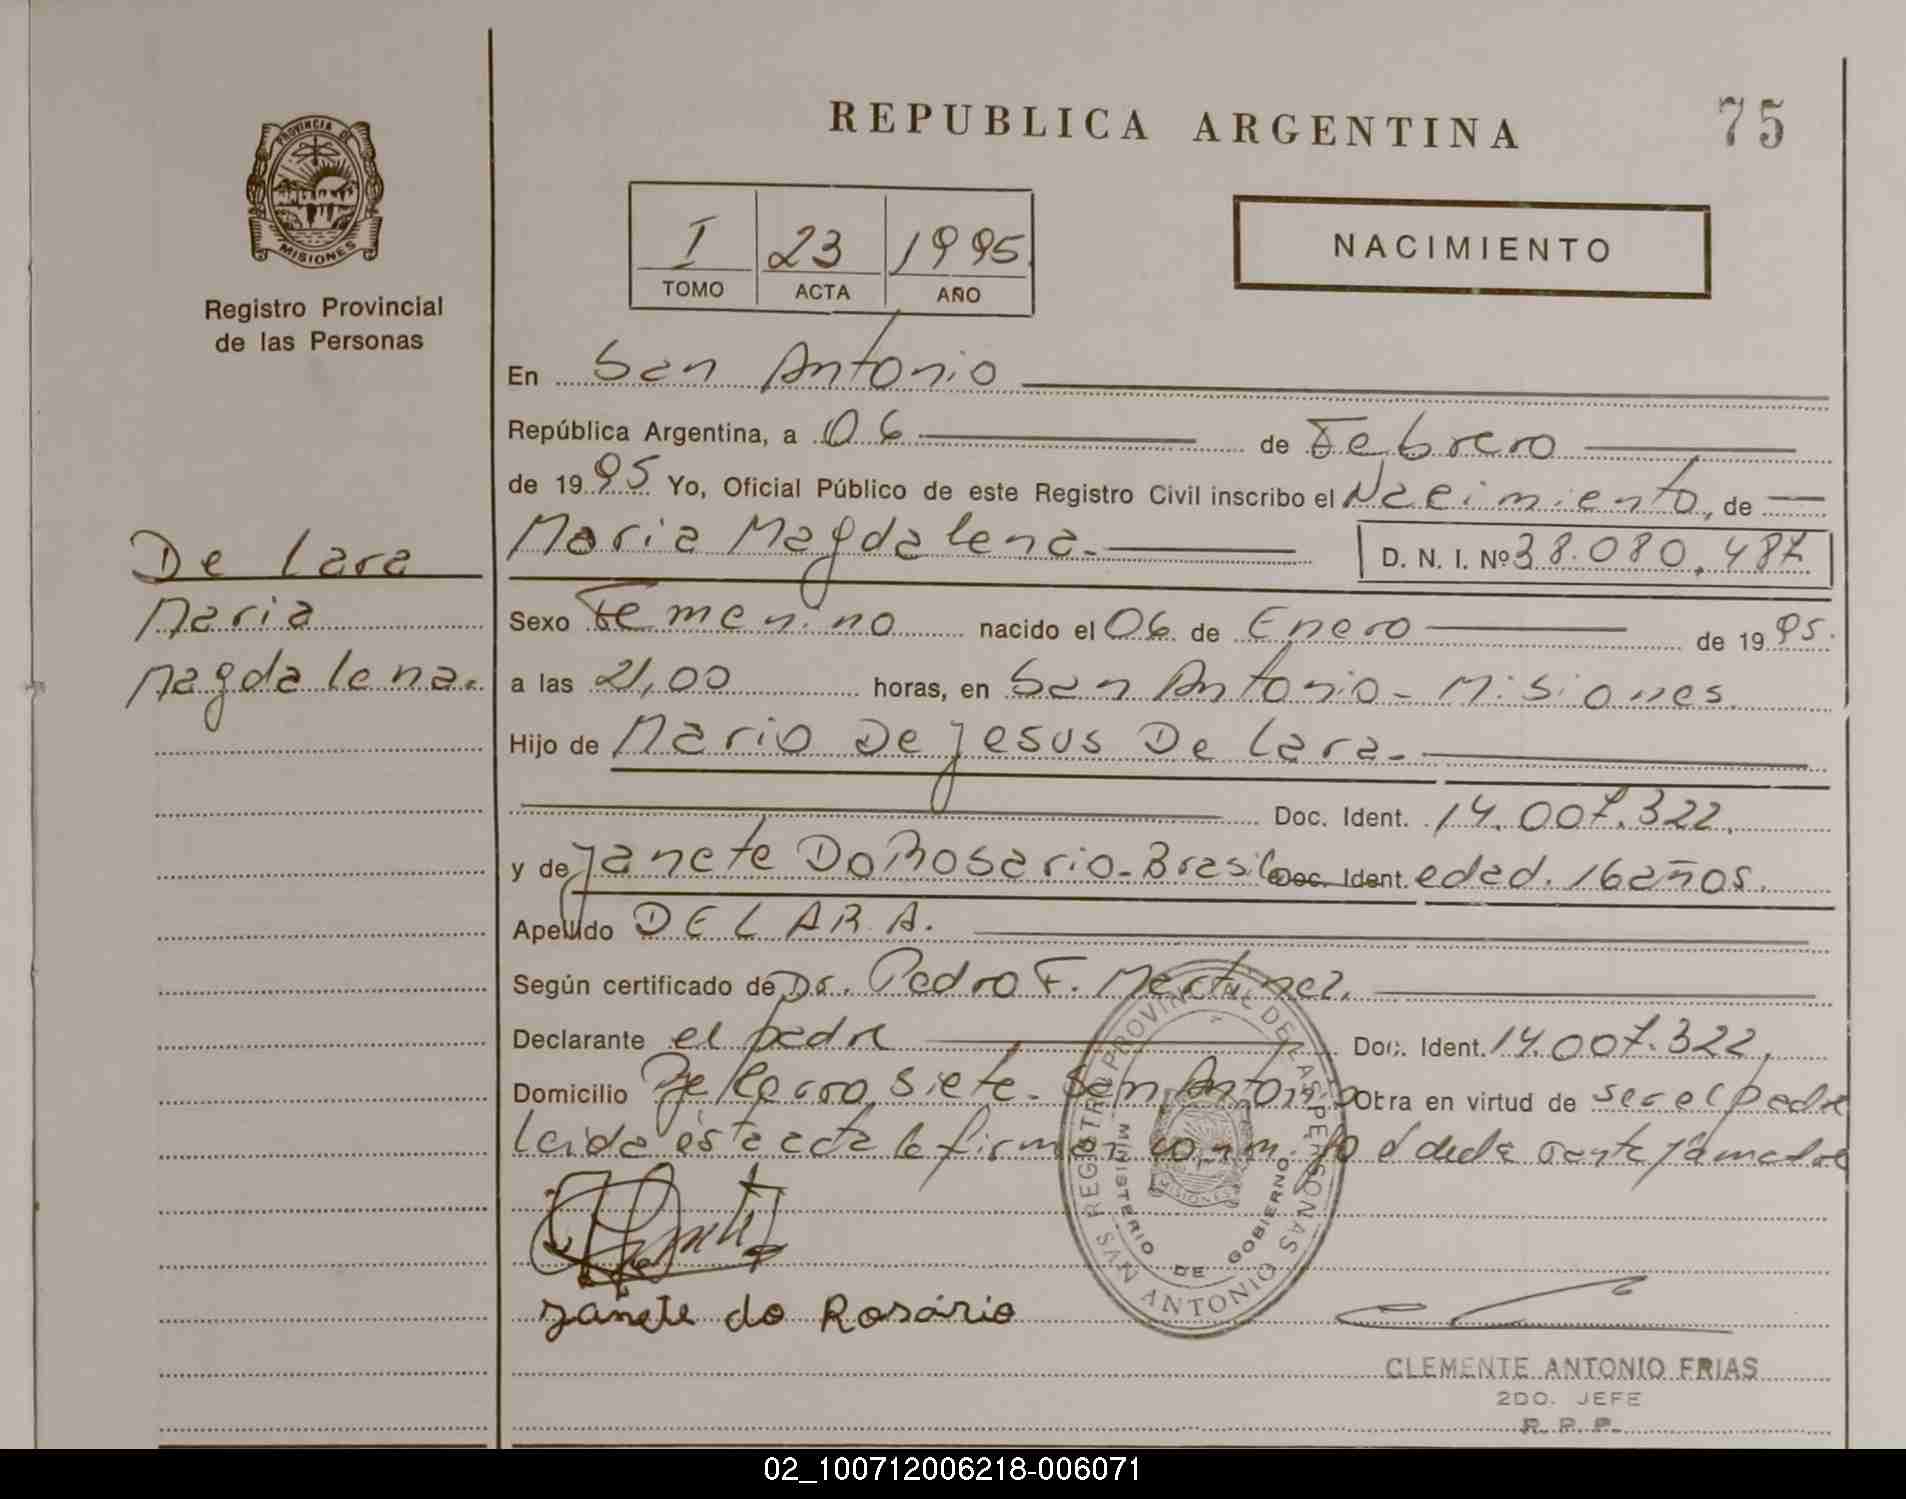 REPUBLICA ARGENTINA
75
PROVINCIA DE
MISIONES
Registro Provincial
de las Personas
I 23 1995
TOMO ACTA AÑO
NACIMIENTO
En San Antonio
República Argentina, a 06 de Febrero
de 1995 Yo, Oficial Público de este Registro Civil inscribo el Nacimiento, de
Maria Magdalena.
D. N. I. Nº 38.080.487
De Lara
Maria
Magdalena.
Sexo Femenino nacido el 06 de Enero de 1995.
a las 21,00 horas, en San Antonio - Misiones.
Hijo de Mario De Jesus De Lara.
Doc. Ident. 14.007.322.
y de Janete Do Rosario - Brasil Doc. Ident. edad. 16 años.
Apellido DE LARA.
Según certificado de Dr. Pedro F. Martinez.
Declarante el padre Doc. Ident. 14.007.322,
Domicilio siete - San Antonio Obra en virtud de ser el padre
Leida esta acta la firman conmigo el
REGISTRO PROVINCIAL DE LAS PERSONAS
MINISTERIO DE GOBIERNO
MISIONES
SAN ANTONIO
Janete do Rosário
CLEMENTE ANTONIO FRIAS
2DO. JEFE
R. P. P.
02_100712006218-006071